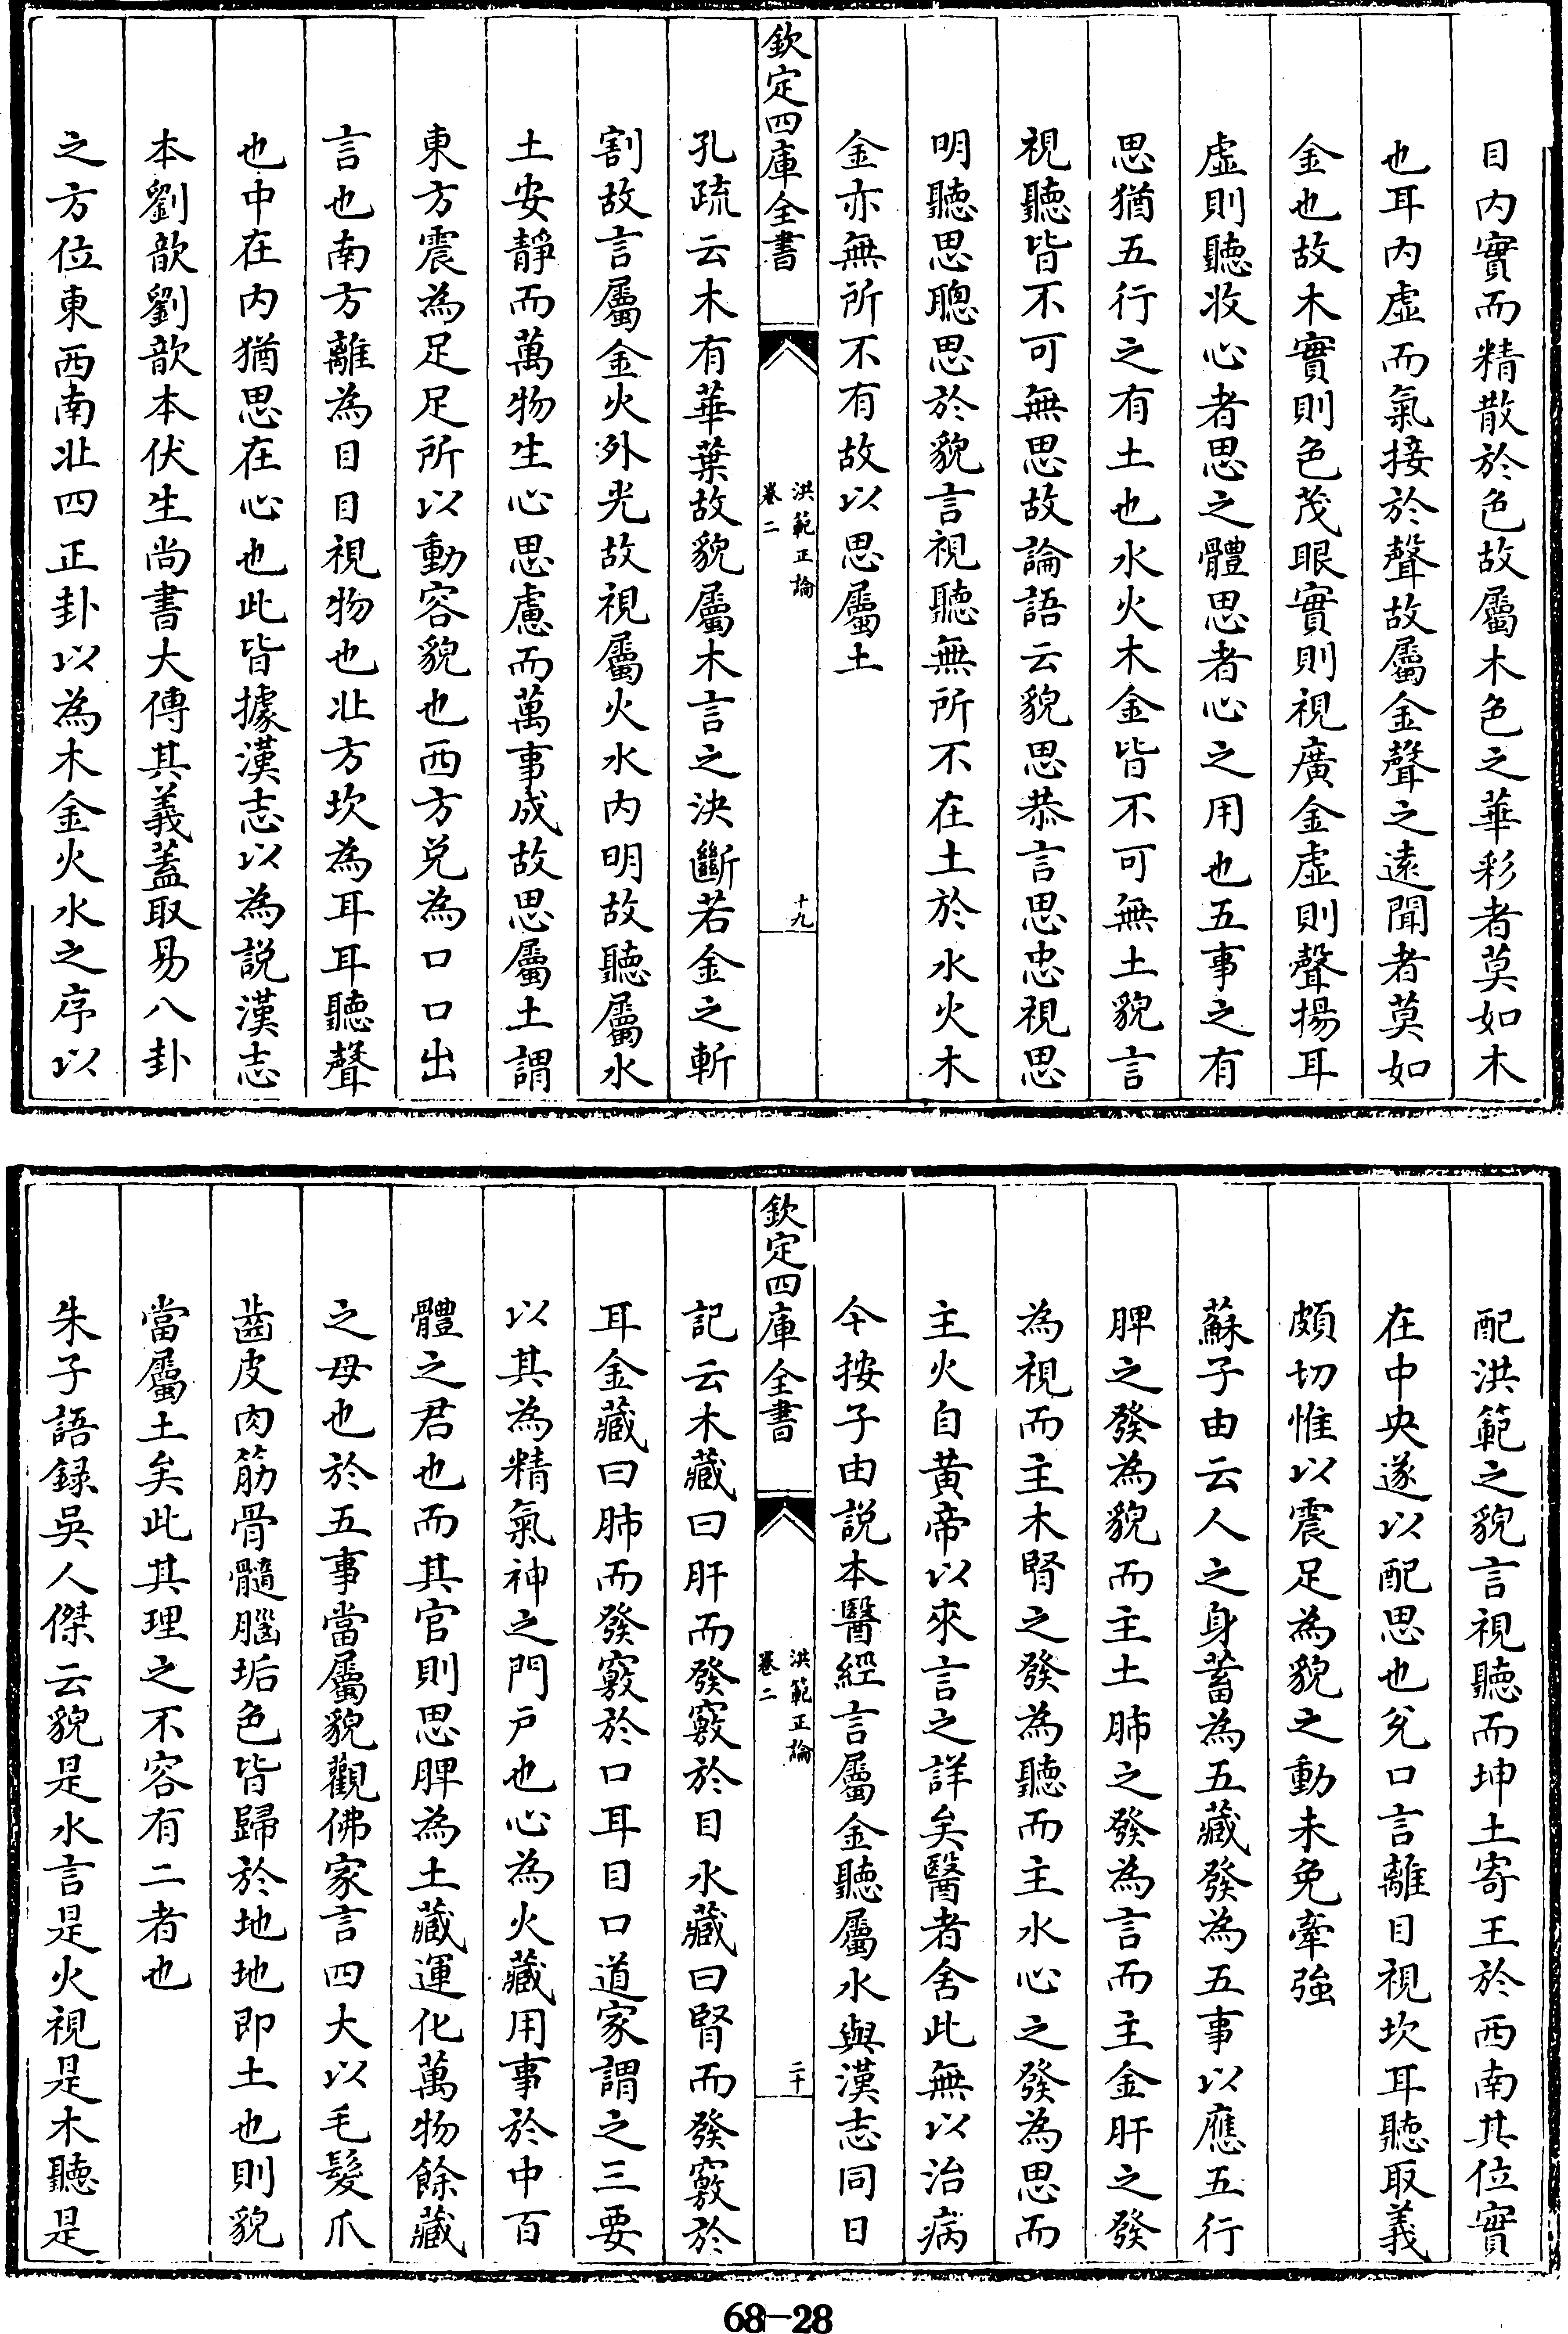 目内實而精散於色故屬木色之華彩者莫如木
也耳内虚而氣接於聲故屬金聲之遠聞者莫如
金也故木實則色茂眼實則視廣金虚則聲揚耳
虚則聽收心者思之體思者心之用也五事之有
思猶五行之有土也水火木金皆不可無土貌言
視聽皆不可無思故論語云貌思恭言思忠視思
明聽思聰思於貌言視聽無所不在土於水火木
金亦無所不有故以思屬土
欽定四庫全書
洪範正論
卷二
十九
孔疏云木有華葉故貌屬木言之決斷若金之斬
割故言屬金火外光故視屬火水内明故聽屬水
土安靜而萬物生心思慮而萬事成故思屬土謂
東方震為足足所以動容貌也西方兌為口口出
言也南方離為目目視物也北方坎為耳耳聽聲
也中在内猶思在心也此皆據漢志以為説漢志
本劉歆劉歆本伏生尚書大傳其義蓋取易八卦
之方位東西南北四正卦以為木金火水之序以
配洪範之貌言視聽而坤土寄王於西南其位實
在中央遂以配思也兌口言離目視坎耳聽取義
頗切惟以震足為貌之動未免牽強
蘇子由云人之身蓄為五藏發為五事以應五行
脾之發為貌而主土肺之發為言而主金肝之發
為視而主木腎之發為聽而主水心之發為思而
主火自黄帝以來言之詳矣醫者舍此無以治病
今按子由説本醫經言屬金聽屬水與漢志同日
欽定四庫全書
洪範正論
卷二
二十
記云木藏曰肝而發竅於目水藏曰腎而發竅於
耳金藏曰肺而發竅於口耳目口道家謂之三要
以其為精氣神之門戸也心為火藏用事於中百
體之君也而其官則思脾為土藏運化萬物餘藏
之母也於五事當屬貌觀佛家言四大以毛髮爪
齒皮肉筋骨髓腦垢色皆歸於地地即土也則貌
當屬土矣此其理之不容有二者也
朱子語録吳人傑云貌是水言是火視是木聽是
68-28